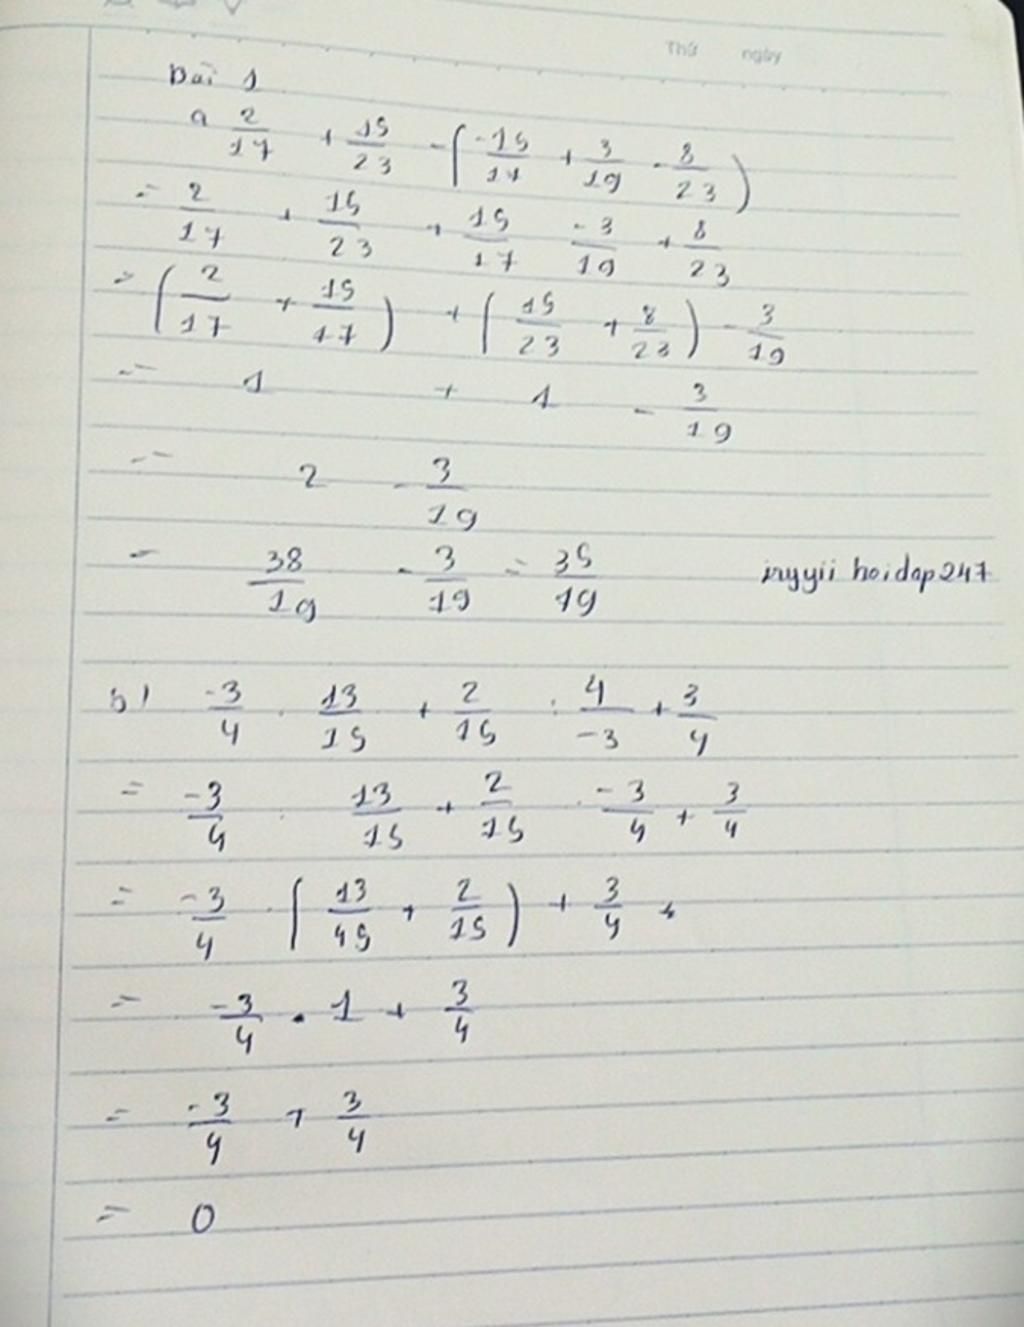 Thứ ngày
Bài 1
a 2/17 + 15/23 - ( -15/17 + 3/19 - 8/23 )
= 2/17 + 15/23 + 15/17 - 3/19 + 8/23
= ( 2/17 + 15/17 ) + ( 15/23 + 8/23 ) - 3/19
= 1 + 1 - 3/19
= 2 - 3/19
= 38/19 - 3/19 = 35/19
iryyii hoidap247
b) -3/4 . 13/15 + 2/15 : 4/-3 + 3/4
= -3/4 . 13/15 + 2/15 . -3/4 + 3/4
= -3/4 . ( 13/15 + 2/15 ) + 3/4
= -3/4 . 1 + 3/4
= -3/4 + 3/4
= 0